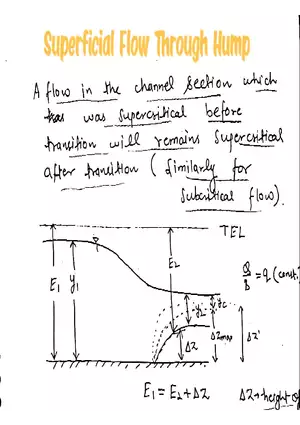 Superficial Flow Through Hump
A flow in the channel section which
has was supercritical before
transition will remains supercritical
after transition ( Similarly for
subcritical flow).
TEL
E₁ y₁ E₂ y₂ yc
Q/B = q (const.)
ΔZ ΔZmax ΔZ'
E₁ = E₂ + ΔZ
ΔZ → height of